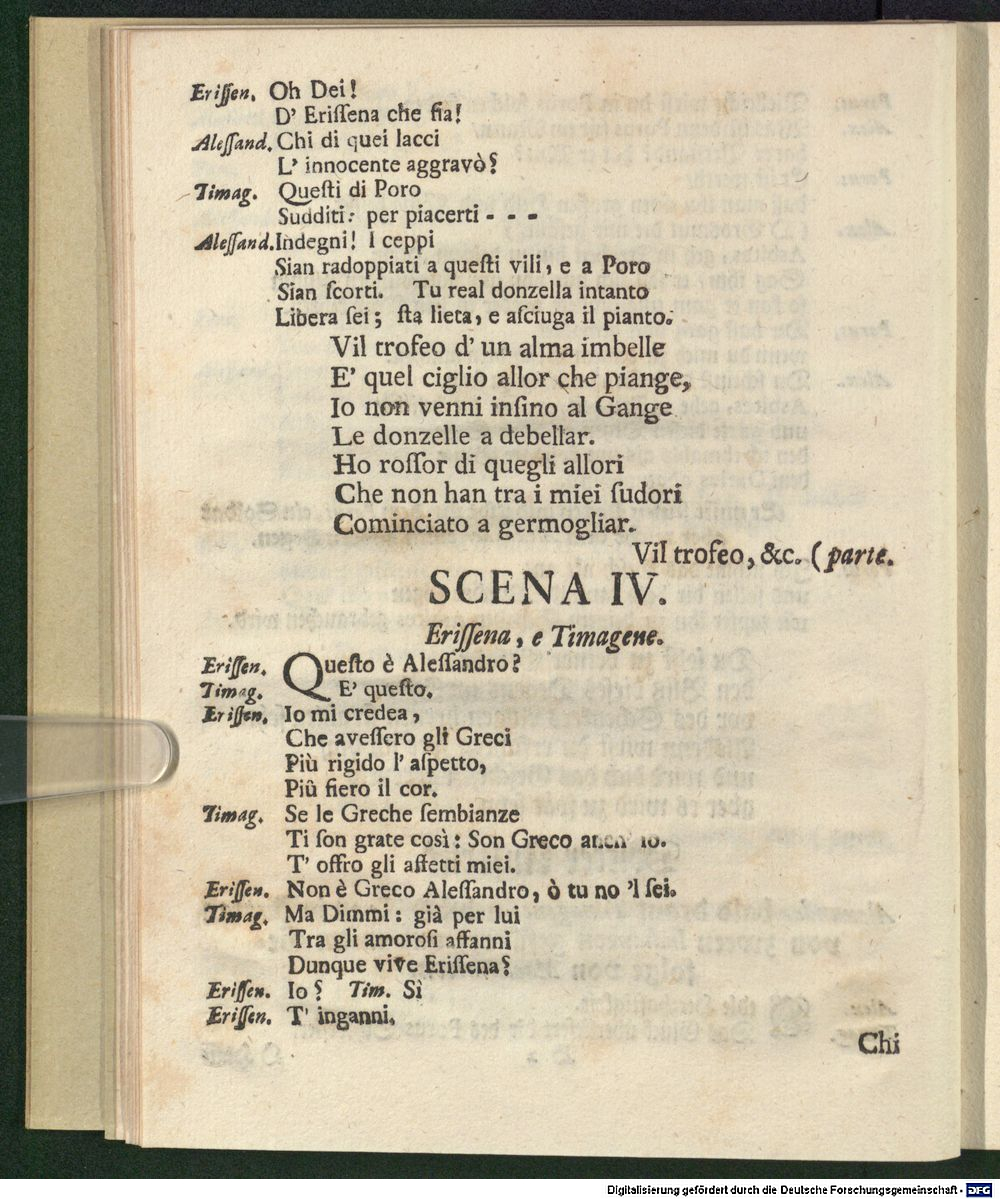 Eriſſen. Oh Dei!
D' Eriſſena che fia!
Aleſſand. Chi di quei lacci
L' innocente aggravò?
Timag. Queſti di Poro
Sudditi: per piacerti - - -
Aleſſand. Indegni! I ceppi
Sian radoppiati a queſti vili, e a Poro
Sian ſcorti. Tu real donzella intanto
Libera ſei; ſta lieta, e aſciuga il pianto.
Vil trofeo d' un alma imbelle
E' quel ciglio allor che piange,
Io non venni inſino al Gange
Le donzelle a debellar.
Ho roſſor di quegli allori
Che non han tra i miei ſudori
Cominciato a germogliar.
Vil trofeo, &c. (parte.
SCENA IV.
Eriſſena, e Timagene.
Eriſſen. Queſto è Aleſſandro?
Timag. E' queſto.
Eriſſen. Io mi credea,
Che aveſſero gli Greci
Più rigido l' aſpetto,
Più fiero il cor.
Timag. Se le Greche ſembianze
Ti ſon grate così: Son Greco anch' io.
T' offro gli affetti miei.
Eriſſen. Non è Greco Aleſſandro, ò tu no 'l ſei.
Timag. Ma Dimmi: già per lui
Tra gli amoroſi affanni
Dunque vive Eriſſena?
Eriſſen. Io? Tim. Sì
Eriſſen. T' inganni.
Chi
Digitalisierung gefördert durch die Deutsche Forschungsgemeinschaft - DFG